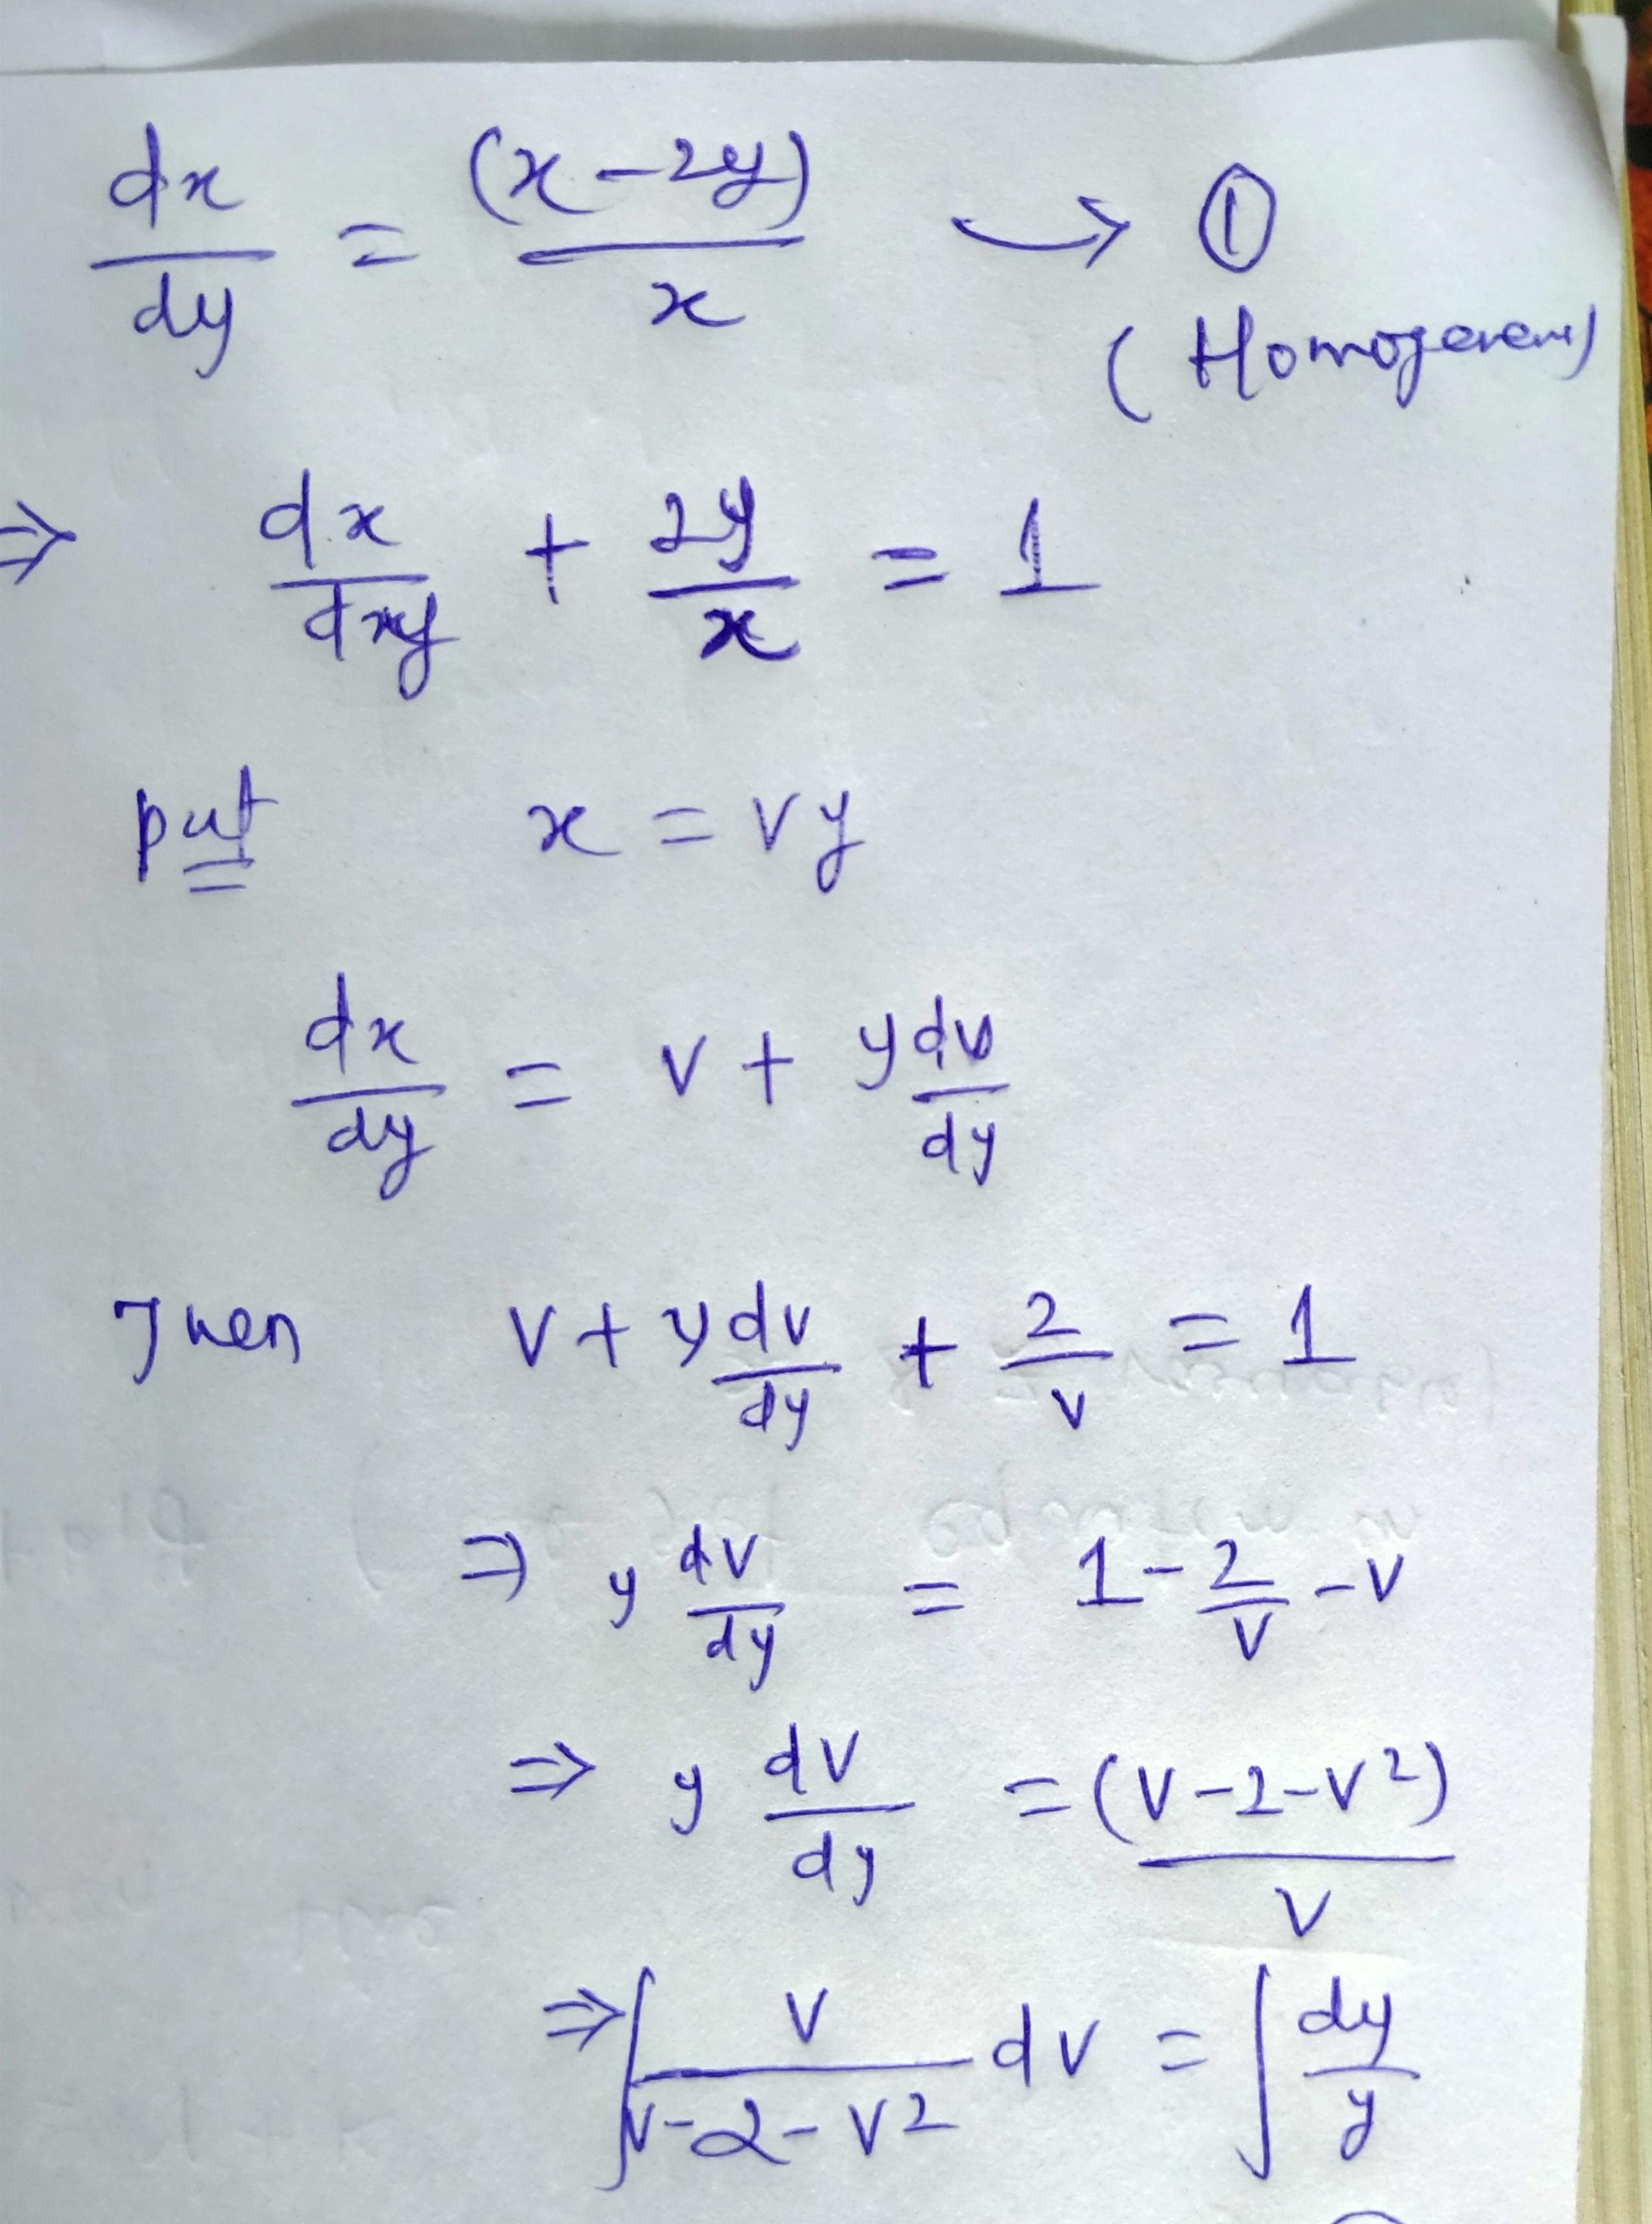 dx/dy = (x-2y)/x → ①
(Homogeneous)
⇒ dx/dxy + 2y/x = 1
put x = vy
dx/dy = v + y dv/dy
Then v + y dv/dy + 2/v = 1
⇒ y dv/dy = 1 - 2/v - v
⇒ y dv/dy = (v-2-v²)/v
⇒ ∫ v/(v-2-v²) dv = ∫ dy/y